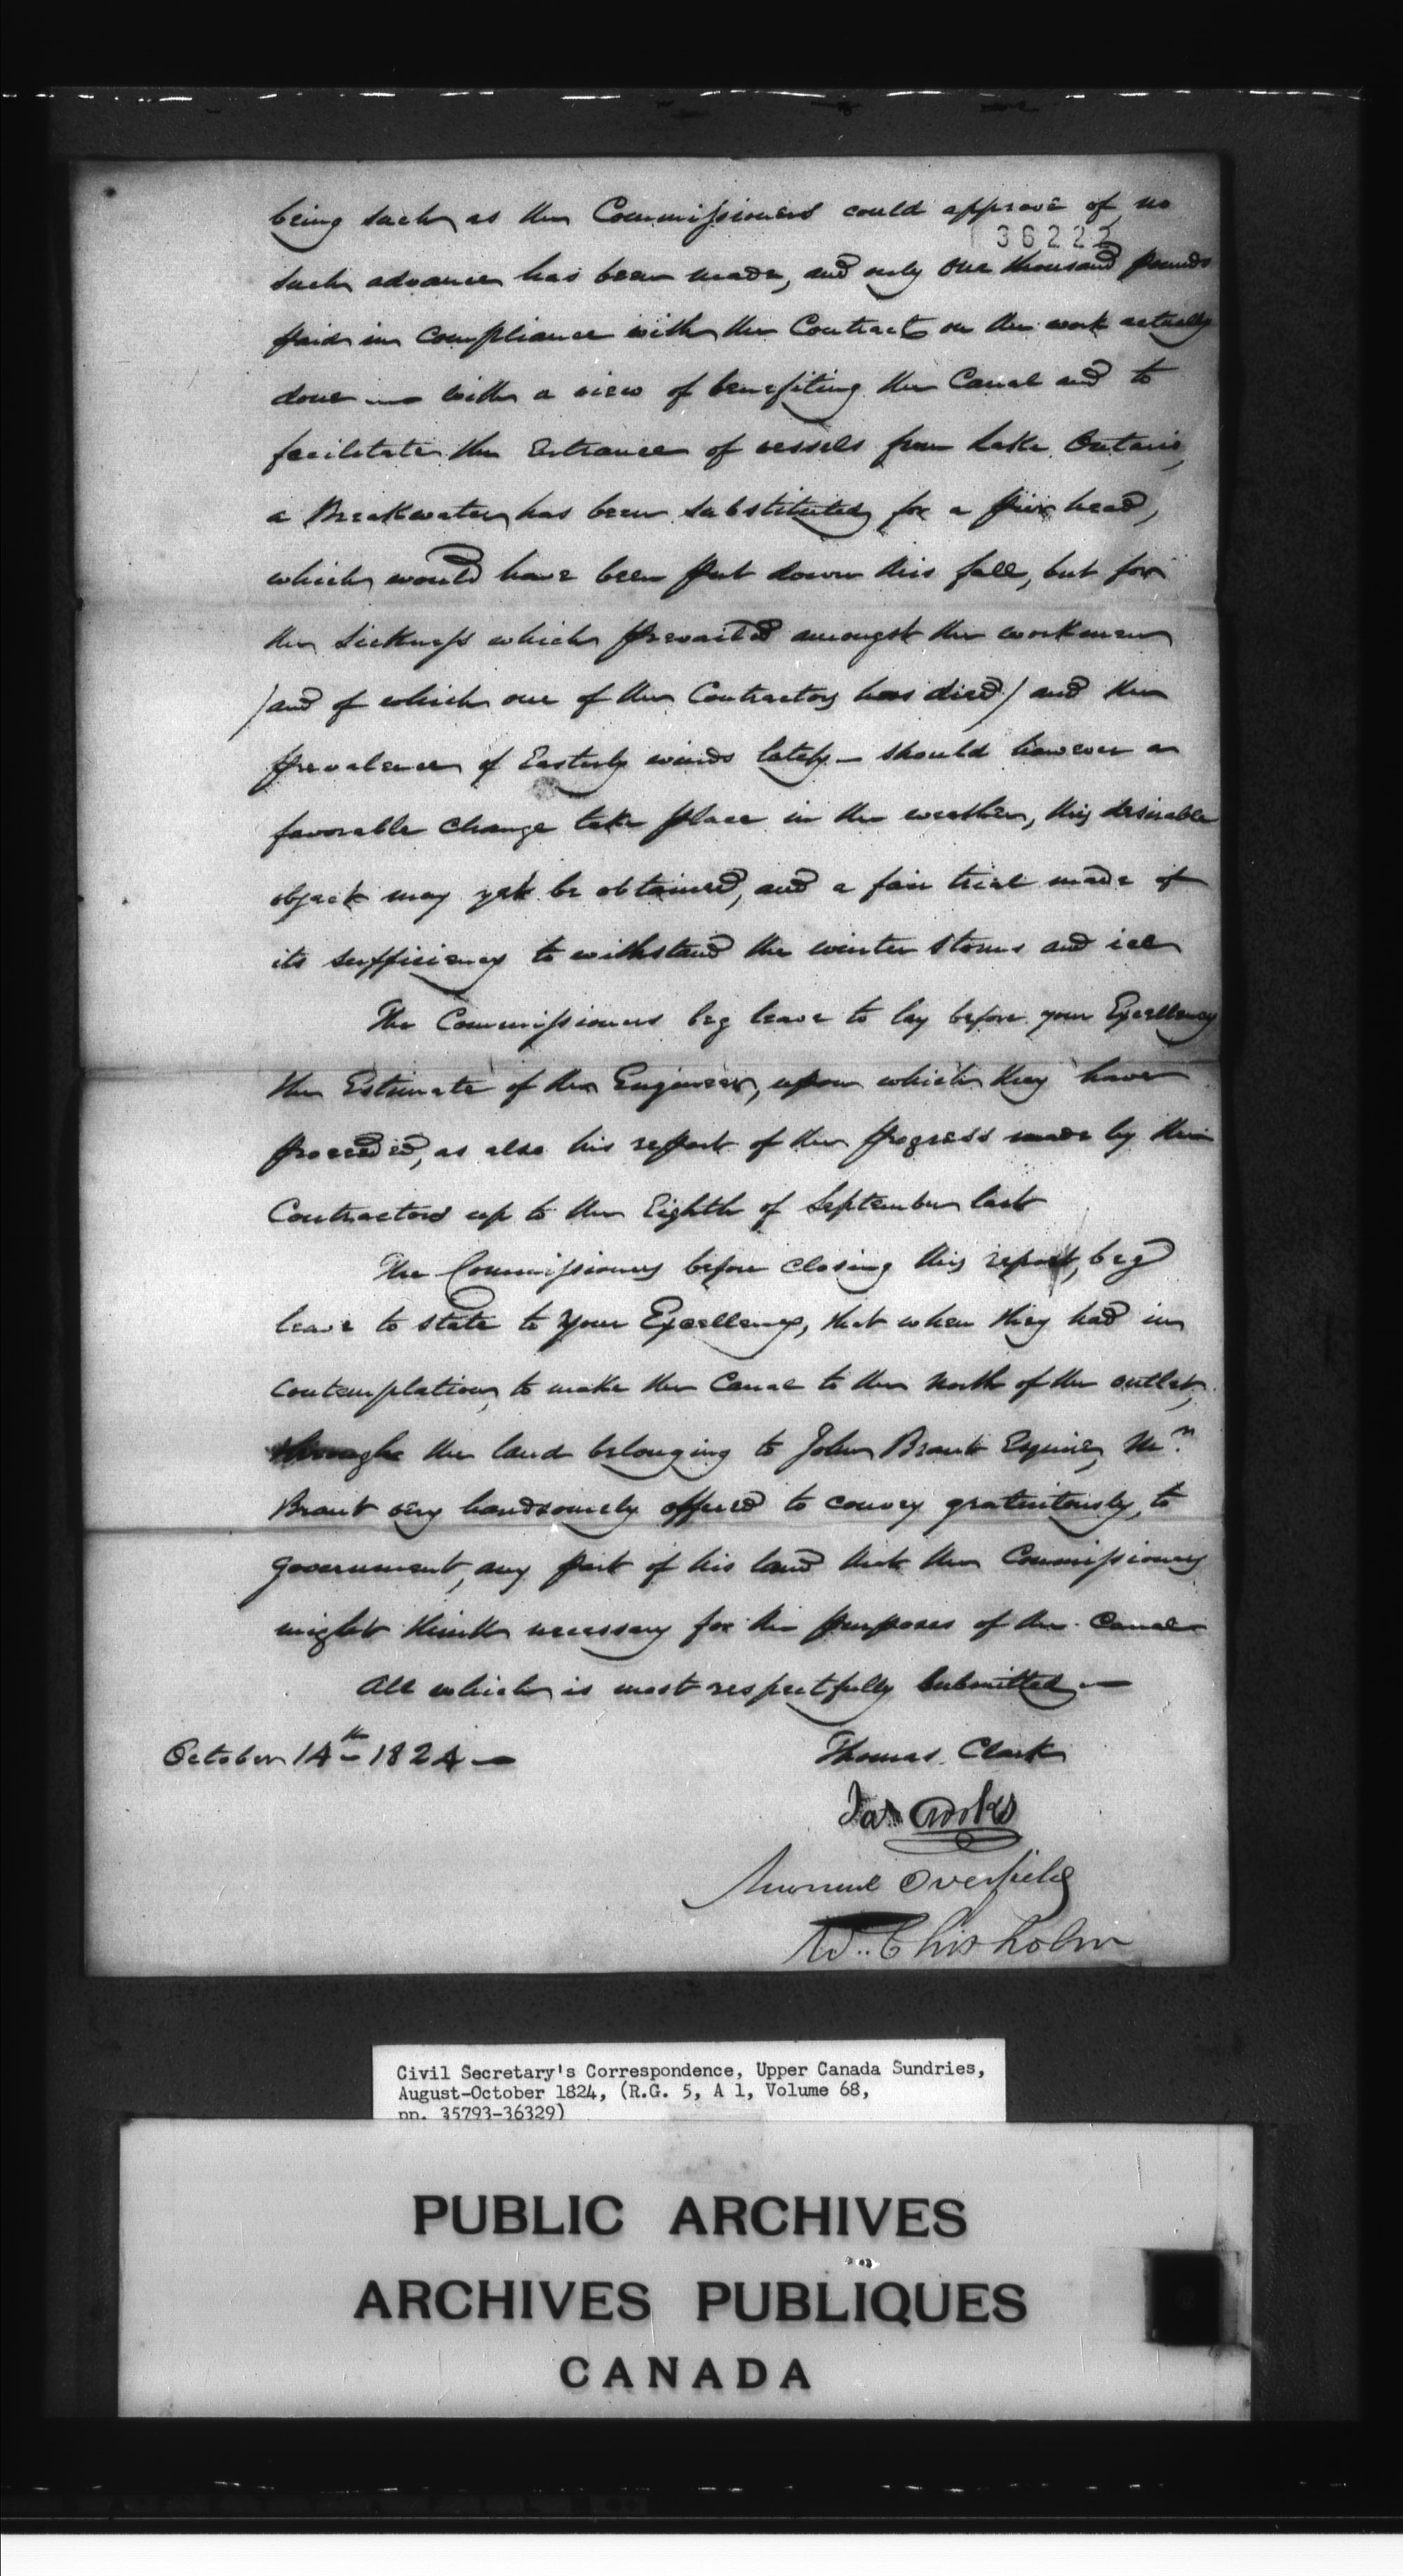 being such as the Commissioners could approve of no
36222
such advance has been made, and only One thousand pounds
paid in compliance with the Contract on the work actually
done — with a view of benefiting the Canal and to
facilitate the Entrance of vessels from Lake Ontario,
a Breakwater has been substituted for a pier head,
which would have been put down this fall, but for
the sickness which prevailed amongst the workmen
/and of which one of the Contractors has died/ and the
prevalence of Easterly winds lately — should however a
favorable change take place in the weather, this desirable
object may yet be obtained, and a fair trial made of
its sufficiency to withstand the winter storms and ice
The Commissioners beg leave to lay before your Excellency
the Estimate of the Engineer, upon which they have
proceeded, as also his report of the progress made by the
Contractors up to the Eighth of September last
The Commissioners before closing this report, beg
leave to state to Your Excellency, that when they had in
contemplation, to make the Canal to the North of the outlet,
through the land belonging to John Brant Esquire, Mr.
Brant very handsomely offered to convey gratuitously, to
government, any part of his land that the Commissioners
might think necessary for the purposes of the Canal
All which is most respectfully Submitted —
October 14th 1824 —
Thomas Clark
Jas Crooks
Manuel Overfield
Wm. Chisholm
Civil Secretary's Correspondence, Upper Canada Sundries,
August-October 1824, (R.G. 5, A 1, Volume 68,
pp. 35793-36329)
PUBLIC ARCHIVES
ARCHIVES PUBLIQUES
CANADA